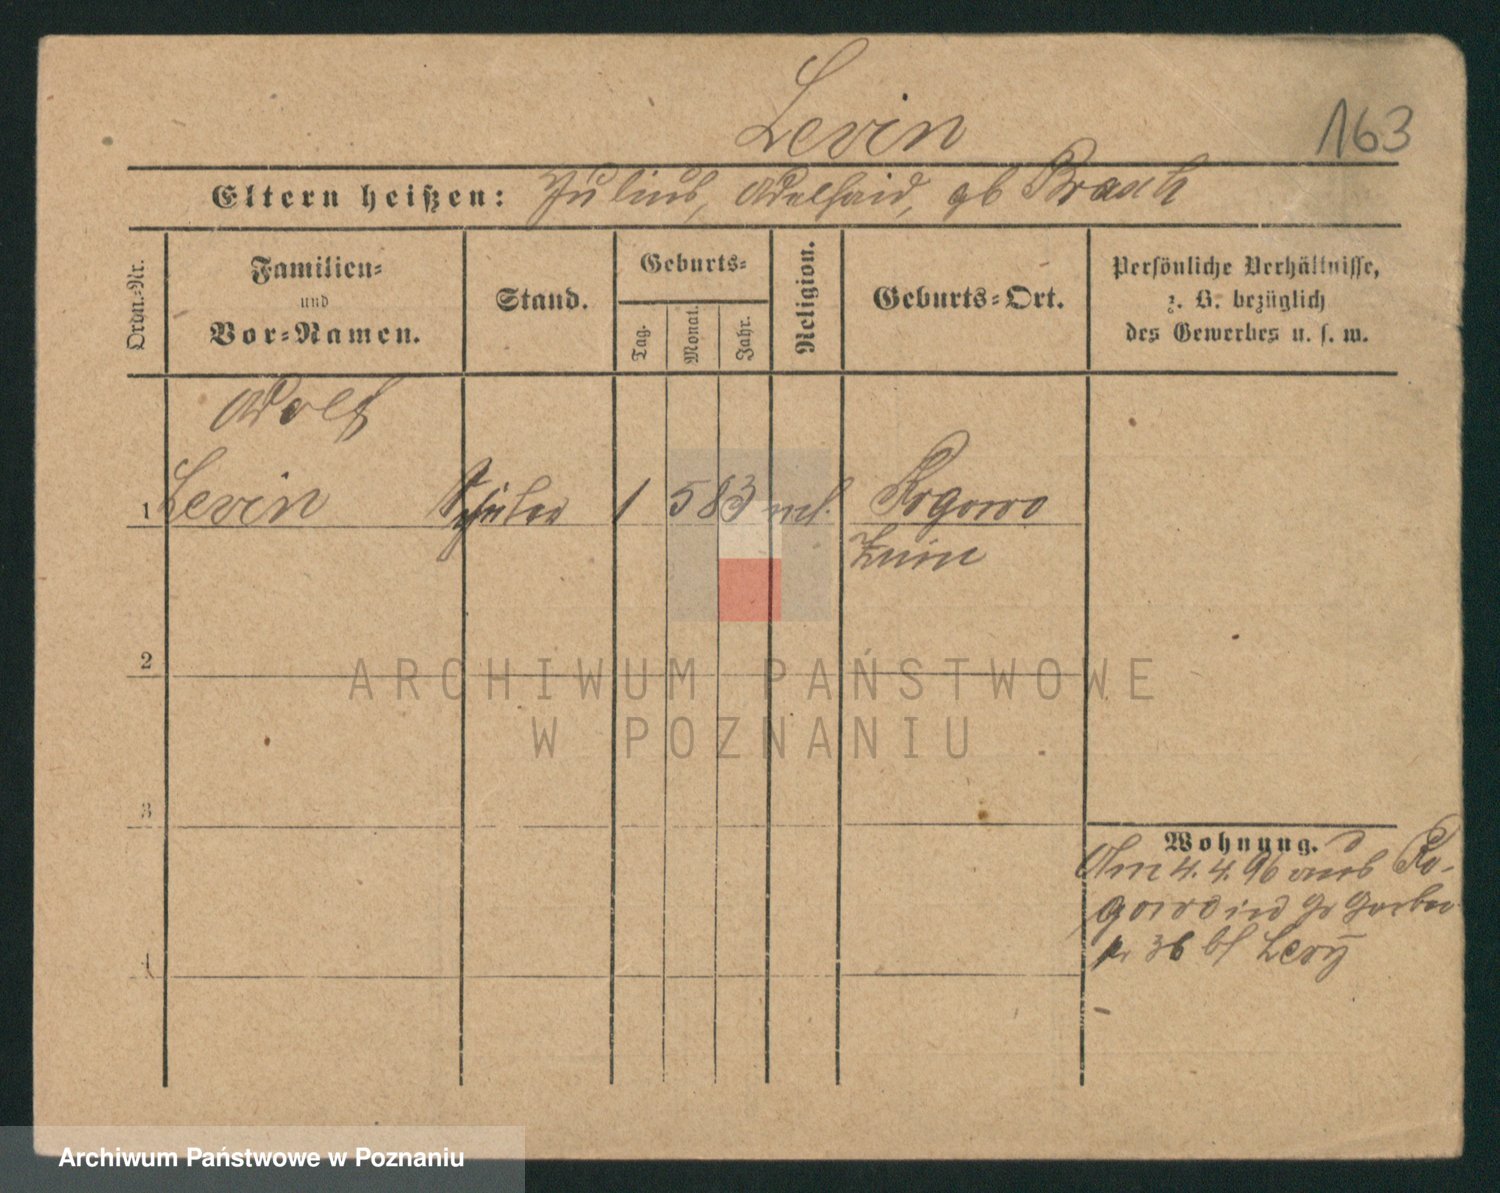 Levin
163
Eltern heißen: Julius, Adelhaid, gb Brasch
Ordn.-Nr.
Familien-
und
Vor-Namen.
Stand.
Geburts-
Tag.
Monat.
Jahr.
Religion.
Geburts-Ort.
Persönliche Verhältnisse,
z. B. bezüglich
des Gewerbes u. s. w.
Adolf
1 Levin Schüler 1 5 83 Rogowo
Znin
2
3
4
Wohnung.
Am 4.4.96 aus Ro-
gowo in Gr Gerber
36 bf Levy
ARCHIWUM PAŃSTWOWE
W POZNANIU
Archiwum Państwowe w Poznaniu